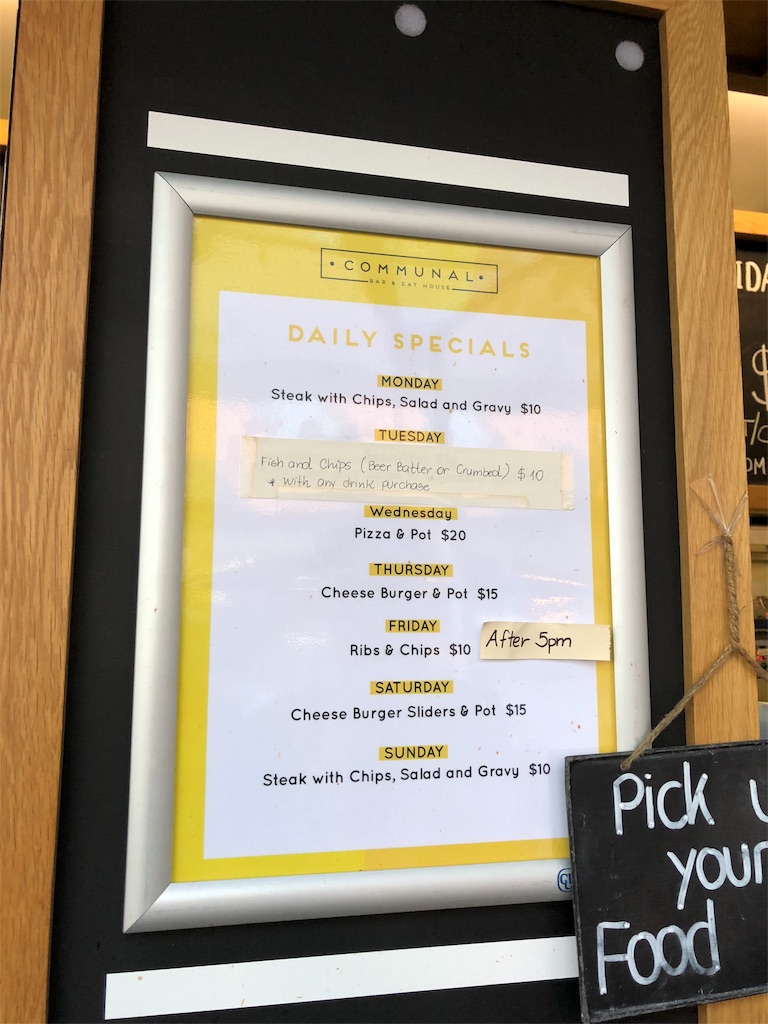 • COMMUNAL •
BAR & EAT HOUSE
DAILY SPECIALS
MONDAY
Steak with Chips, Salad and Gravy $10
TUESDAY
Fish and Chips (Beer Batter or Crumbed) $10
* With any drink purchase
Wednesday
Pizza & Pot $20
THURSDAY
Cheese Burger & Pot $15
FRIDAY
Ribs & Chips $10 After 5pm
SATURDAY
Cheese Burger Sliders & Pot $15
SUNDAY
Steak with Chips, Salad and Gravy $10
Pick
your
Food
$